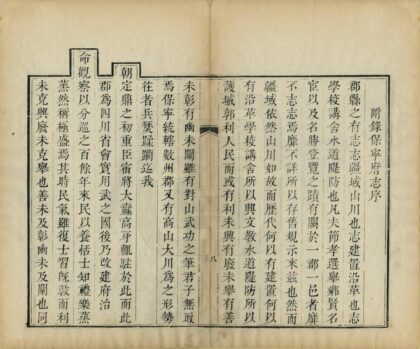 附錄保寧府志序
郡縣之有志志疆域山川也志建置沿革也志
學校講舍水道隄防也凡夫節孝選舉鄉賢名
宦以及名勝登覽之蹟有關於一郡一邑者靡
不志志焉靡不詳所以存昔規示來茲也然而
疆域依然山川如故而歷代何以有建置何以
有沿革學校講舍所以興文教水道隄防所以
護城郭利人民而或有利未興有廢未舉有善
未彰有幽未闡雖有對山武功之筆君子無取
焉保寧統轄數州郡又有高山大川為之形勢
往者兵燹蹂躪迄我
朝定鼎之初重臣宿將大纛高牙輒駐於此而此
郡為四川省會賓用武之國後乃改建府治
命觀察以分巡之百餘年來民以養恬士知禮樂蒸
蒸然稱極盛焉其時民氣雖復士習既敦而利
未克興廢未克舉也善未及彰幽未及闡也同